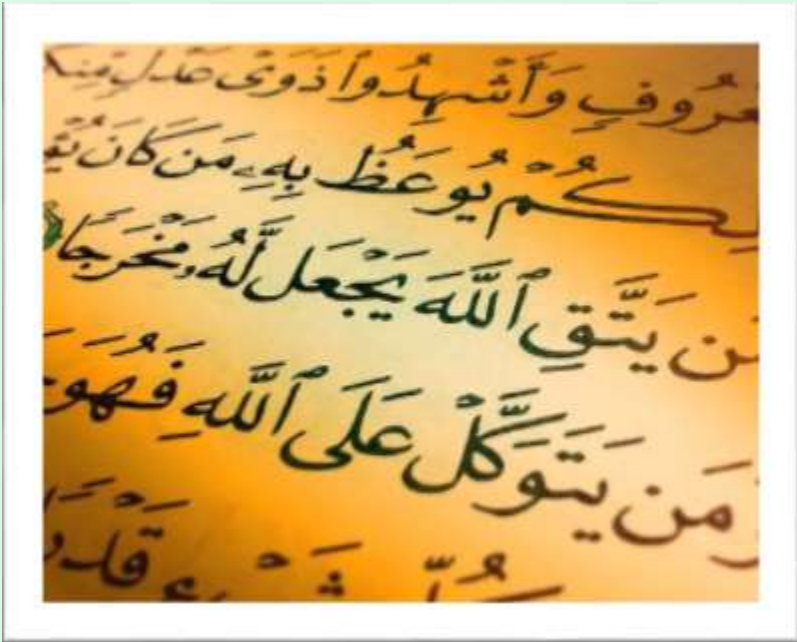 عْرُوفٍ وَأَشْهِدُوا۟ ذَوَىْ عَدْلٍ مِّنكُ
لِكُمْ يُوعَظُ بِهِۦ مَن كَانَ يُؤْ
مَن يَتَّقِ ٱللَّهَ يَجْعَل لَّهُۥ مَخْرَجًا
وَمَن يَتَوَكَّلْ عَلَى ٱللَّهِ فَهُوَ
كُلِّ شَىْءٍ قَدْ